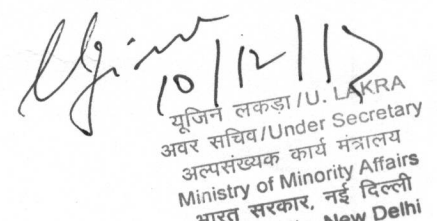 10/12/13
यूजिन लकड़ा/U. LAKRA
अवर सचिव/Under Secretary
अल्पसंख्यक कार्य मंत्रालय
Ministry of Minority Affairs
भारत सरकार, नई दिल्ली
New Delhi